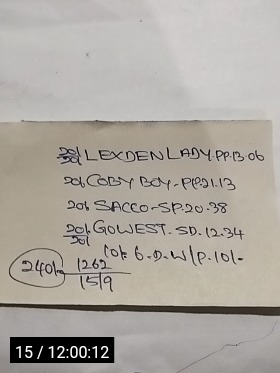 20/- LEXDEN LADY.PP.13.06
20/-
20/- COBY BOY-PP.21.13
20/- SACCO-SP.20.38
20/- GOWEST-SD.12.34
20/-
10/- 6.D.W/P.10/-
240/- 1262
15/9
15 / 12:00:12